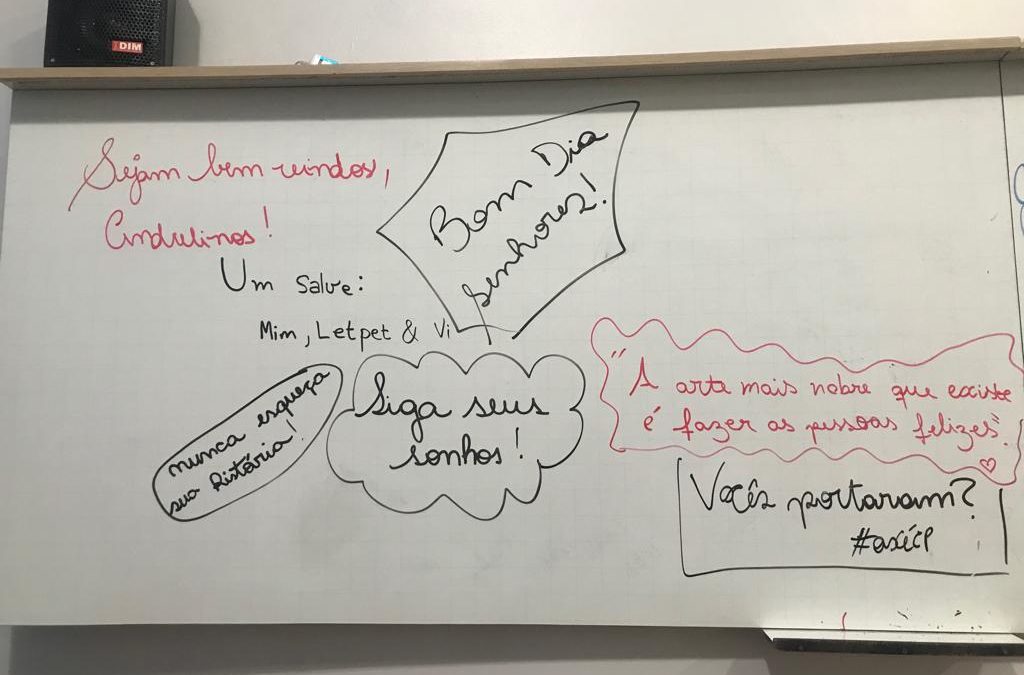 DIM
Sejam bem vindos,
Bom Dia
senhores!
Um salve:
Mim, Letpet & Vi
nunca esqueça
sua história!
Siga seus
sonhos!
"A arte mais nobre que existe
é fazer as pessoas felizes".
Vocês portaram?